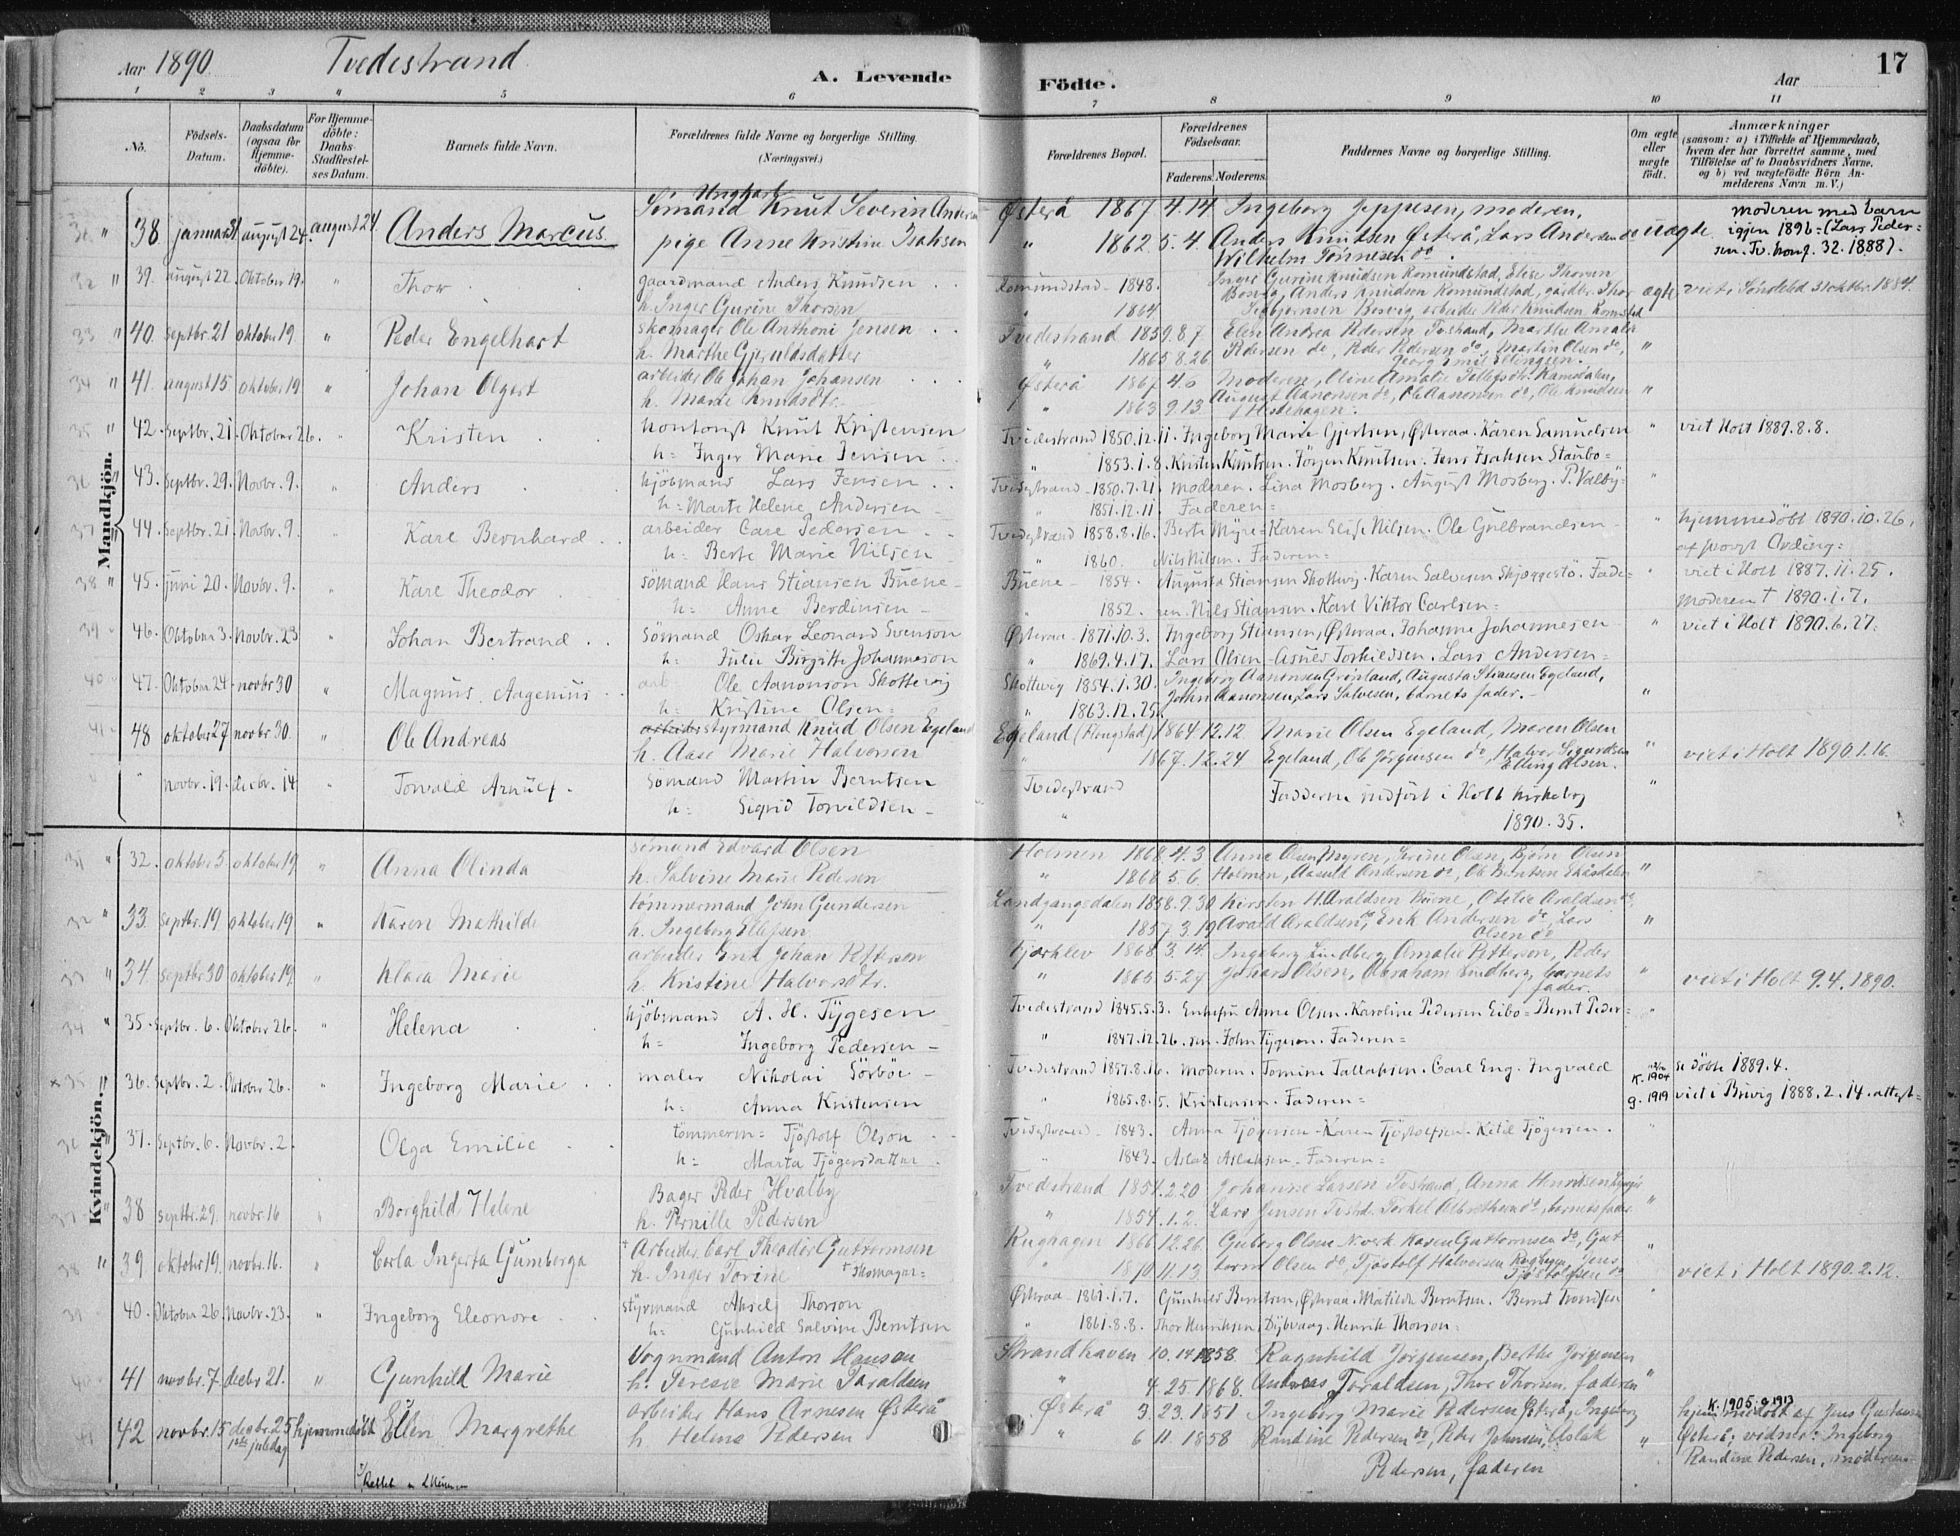 Aar 1890. Tvedestrand A. Levende Födte. Aar 17
1 2 3 4 5 6 7 8 9 10 11
No. Födsels-Datum. Daabsdatum (ogsaa for Hjemme-döbte). For Hjemme-döbte: Daabs-Stadfæstel-ses Datum. Barnets fulde Navn. Forældrenes fulde Navne og borgerlige Stilling. (Næringsvei.) Forældrenes Bopæl. Forældrenes Födselsaar. Faderens. Moderens. Faddernes Navne og borgerlige Stilling. Om ægte eller uægte födt. Anmærkninger (saasom: a) i Tilfælde af Hjemmedaab, hvem der har forrettet samme, med Tilföielse af to Daabsvidners Navne, og b) ved uægtefödte Börn An-melderens Navn m. V.)
Mandkjön.
38 januar 31 august 24. august 24 Anders Marcus. Ungkarl Sömand Knut Severin Andersen Østerå 1867 4.14 Ingeborg Jeppesen, moderen, uægte moderen med barn
pige Anne Kristine Isaksen " 1862 5.4. Anders Knutsen Østerå, Lars Andersen do igjen 1896 = (Lars Peder-
Wilhelm Tönnesen do. sen. Tv. konf. 32. 1888).
39. august 22. Oktober 19. " Thor gaardmand Anders Knudsen Romundstad 1848. Inger Gurine Knudsen Romundstad, Elise Thorsen ægte viet i Söndeled 31 oktbr. 1884.
h. Inger Gurine Thorsen " 1864 Anders Knudsen Romundstad, gårdbr. Thor
40. septbr. 21 oktober 19. " Peder Engelhart skomager Ole Anthoni Jensen Tvedestrand 1859.8.7 Elen Andrea Pedersen Tvstrand, Marthe Amalie
h. Marthe Gjeruldsdatter " 1865 8.26 Pedersen do, Peder Pedersen do, Martin Olsen do, "
Georg Emil Ellingsen.
41. august 15 oktober 19 " Johan Olgert arbeider Ole Johan Johansen Østerå 1867 4. Moderen, Oline Amalie
h. Marie Knudsdtr. " 1863 9.13 August Aanonsen do, Ole Aanonsen do, Ole Knudsen "
Hestehagen.
42. septbr. 21. Oktober 26. " Kristen kontorist Knut Kristensen Tvedestrand 1850.12.11. Ingeborg Marie Gjertsen, Østeraa. Karen Samuelsen " viet Holt 1889.8.8.
h= Inger Marie Jensen " 1853.1.8. Kristen Knutsen. Jörgen Knutsen. Jens Isaksen Staubo=
43. septbr. 29. Novbr. 9. " Anders kjöbmand Lars Jensen Tvedestrand 1850.7.21. moderen. Lina Mosberg. August Mosberg. P. Valby= "
h= Marte Helene Andersen " 1851.12.11. Faderen=
44. septbr. 21. Novbr. 9. " Karl Bernhard arbeider Carl Pedersen Tvedestrand 1858.8.16. Berte Myre= Karen Elise Nilsen. Ole Gulbrandsen " hjemmedöbt 1890.10.26.
h= Berte Marie Nilsen " 1860. Nils Nilsen. Faderen= af provst Arding=
45. juni 20. Novbr. 9. " Karl Theodor sömand Hans Stiansen Buene Buene 1854. Augusta Stiansen Skottevig. Karen Salvesen Skjæggestö. Fade= " viet i Holt 1887.11.25.
h= Anne Berdinsen " 1852. ren. Nils Stiansen. Karl Viktor Carlsen= moderen † 1890.1.7.
46. Oktober 3. Novbr. 23 " Johan Bertrand sömand Oskar Leonard Svenson Østeraa 1871.10.3. Ingeborg Stiansen, Østeraa. Johanne Johannesen " viet i Holt 1890.6.27.
h= Julie Birgitte Johanneson " 1869.4.17. Lars Olsen. Torkildsen. Lars Andersen=
47. Oktober 24. novbr 30 " Magnus Aagenius arb. Ole Aanonson Skottevig Skottevig 1854.1.30. Ingeborg Aanonsen Grönland, Augusta Stiansen Egeland,
h= Kristine Olsen= " 1863.12.25. John Aanonsen, Lars Salvesen, barnets fader. "
48 oktober 27 novbr 30. " Ole Andreas arbeider styrmand Knud Olsen Egeland Egeland 1864 12.12 Marie Olsen Egeland, Maren Olsen
h. Aase Marie Halvorsen " 1867.12.24 Egeland, Ole Jörgensen do, Halvor Sigurdsen " viet i Holt 1890.1.16.
Elling Olsen.
" novbr. 19. decbr. 14 " Torvald Arnulf. sömand Martin Berntsen Tvedestrand Fadderne indfört i Holt kirkebog "
h= Sigrid Torvildsen " 1890.35.
Kvindekjön.
32. oktober 5. oktober 19 " Anna Olinda sömand Edvard Olsen Holmen 1868.4.3 Anna Olsen Myren, Serine Olsen, Björn Olsen "
h. Salvine Marie Pedersen " 1868.5.6. Holmen, Aasuld Andersen do, Ole Berntsen
33. septbr. 19 oktober 19 " Karen Mathilde tömmermand John Gundersen Landgangsdalen 1858.9.30 Kirsten H. Araldsen Buene, Otilie Araldsen do,
h. Ingeborg Olefsen " 1857 3.19 Arald Araldsen do, Erik Andersen do, Lars "
Olsen do
34 septbr 30 oktober 19. " Klara Marie arbeider Erik Johan Petterson Bjørklev 1868 3.14. Ingeborg Lindberg, Amalie Petterson, Peder
h. Kristine Halvorsdtr. " 1865 5.27 Johan Olsen, Abraham Lindberg, barnets " viet i Holt 9.4.1890.
fader.
35. septbr. 6. Oktober 26. " Helena kjöbmand A. H. Tygesen Tvedestrand 1845.5.3. Enkefru Anne Olsen. Karoline Pedersen Eibo= Bernt Peder= "
h= Ingeborg Pedersen " 1847.12.26. sen. John Tygeson. Faderen=
36. septbr. 2. Oktober 26. " Ingeborg Marie maler Nikolai Sörböe Tvedestrand 1857.8.16. moderen. Tomine Tallaksen. Carl Eng. Ingvald K. 1904 se döbte 1889.4.
h= Anna Kristensen " 1865.8.5. Kristensen. Faderen= g. 1919 viet i Brevig 1888.2.14. attest=
37. septbr. 6. Novbr. 2. " Olga Emilie tömmerm= Tjöstolf Olson Tvedestrand 1843. Anna Tjögersen. Karen Tjöstolfsen. Ketil Tjögersen. "
h= Marta Tjögersdatter " 1843. Aslak Aslaksen. Faderen=
38 septbr. 29. novbr. 16 " Borghild Helene Bager Peder Hvalby Tvedestrand 1854.2.20 Johanne Larsen Tvstrand, Anna Henriksen
h. Pernille Pedersen " 1854.1.2. Lars Jensen Tvstrd. Torkel Albrethson do, barnets fader "
39 oktober 19. novbr. 16. " Carla Ingerta Gumberga † Arbeider. Carl Theodor Guttormsen Rughagen 1866 12.26. Guborg Olsen N. verk Karen Guttormsen do, Gut- "
h. Inger Torine † skomager= " 1870 11.13 torm Olsen do, Tjöstolf Halvorsen Rughagen, Jens Tjöstolfsen do viet i Holt 1890.2.12.
40. Oktober 26. Novbr. 23. " Ingeborg Eleonore styrmand Aksel Thorson Østeraa 1861.1.7. Gunhild Berntsen, Østeraa. Matilde Berntsen. Bernt Tronsen "
h= Gunhild Salvine Berntsen " 1861.8.8. Thor Henriksen, Dybvaag. Henrik Thorson=
41 novbr. 7. decbr 21. " Gunhild Marie Vognmand Anton Hansen Strandhaven 10.14 1858 Ragnhild Jörgensen, Berthe Jörgensen
h. Terese Marie Taraldsen " 4.25.1868. Andreas Toraldsen, Thor Thorsen. faderen "
42 novbr. 15 decbr. 25 1ste juledag hjemmedöbt Ellen Margrethe arbeider Hans Arnesen Østerå Østerå 3.23.1851 Ingeborg Marie Pedersen Østerå, Ingeborg K. 1905. g 1913 hjemmedöbt af Jens Gustavsen
h. Helene Pedersen " 6 11.1858 Randine Pedersen do, Peder Johnsen, Aslak " Østerå; vidner: Ingeborg
Pedersen, faderen Randine Pedersen, moderen
Rettet